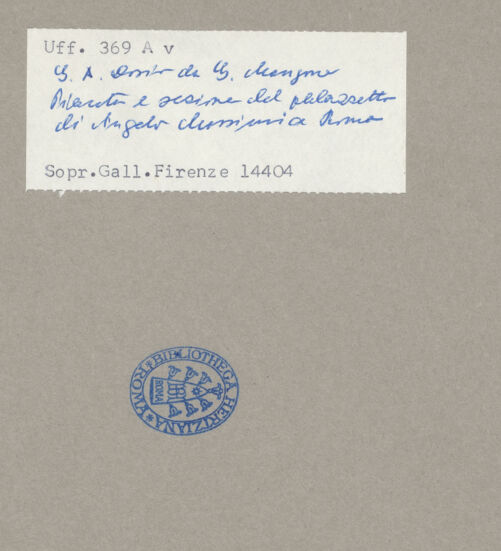 Uff. 369 A v
G. A. Dosio da G. Mangone
Pianta e sezione del palazzetto
di Angelo Massimi a Roma
Sopr.Gall.Firenze 14404
BIBLIOTHECA HERTZIANA ROMA
ROMA